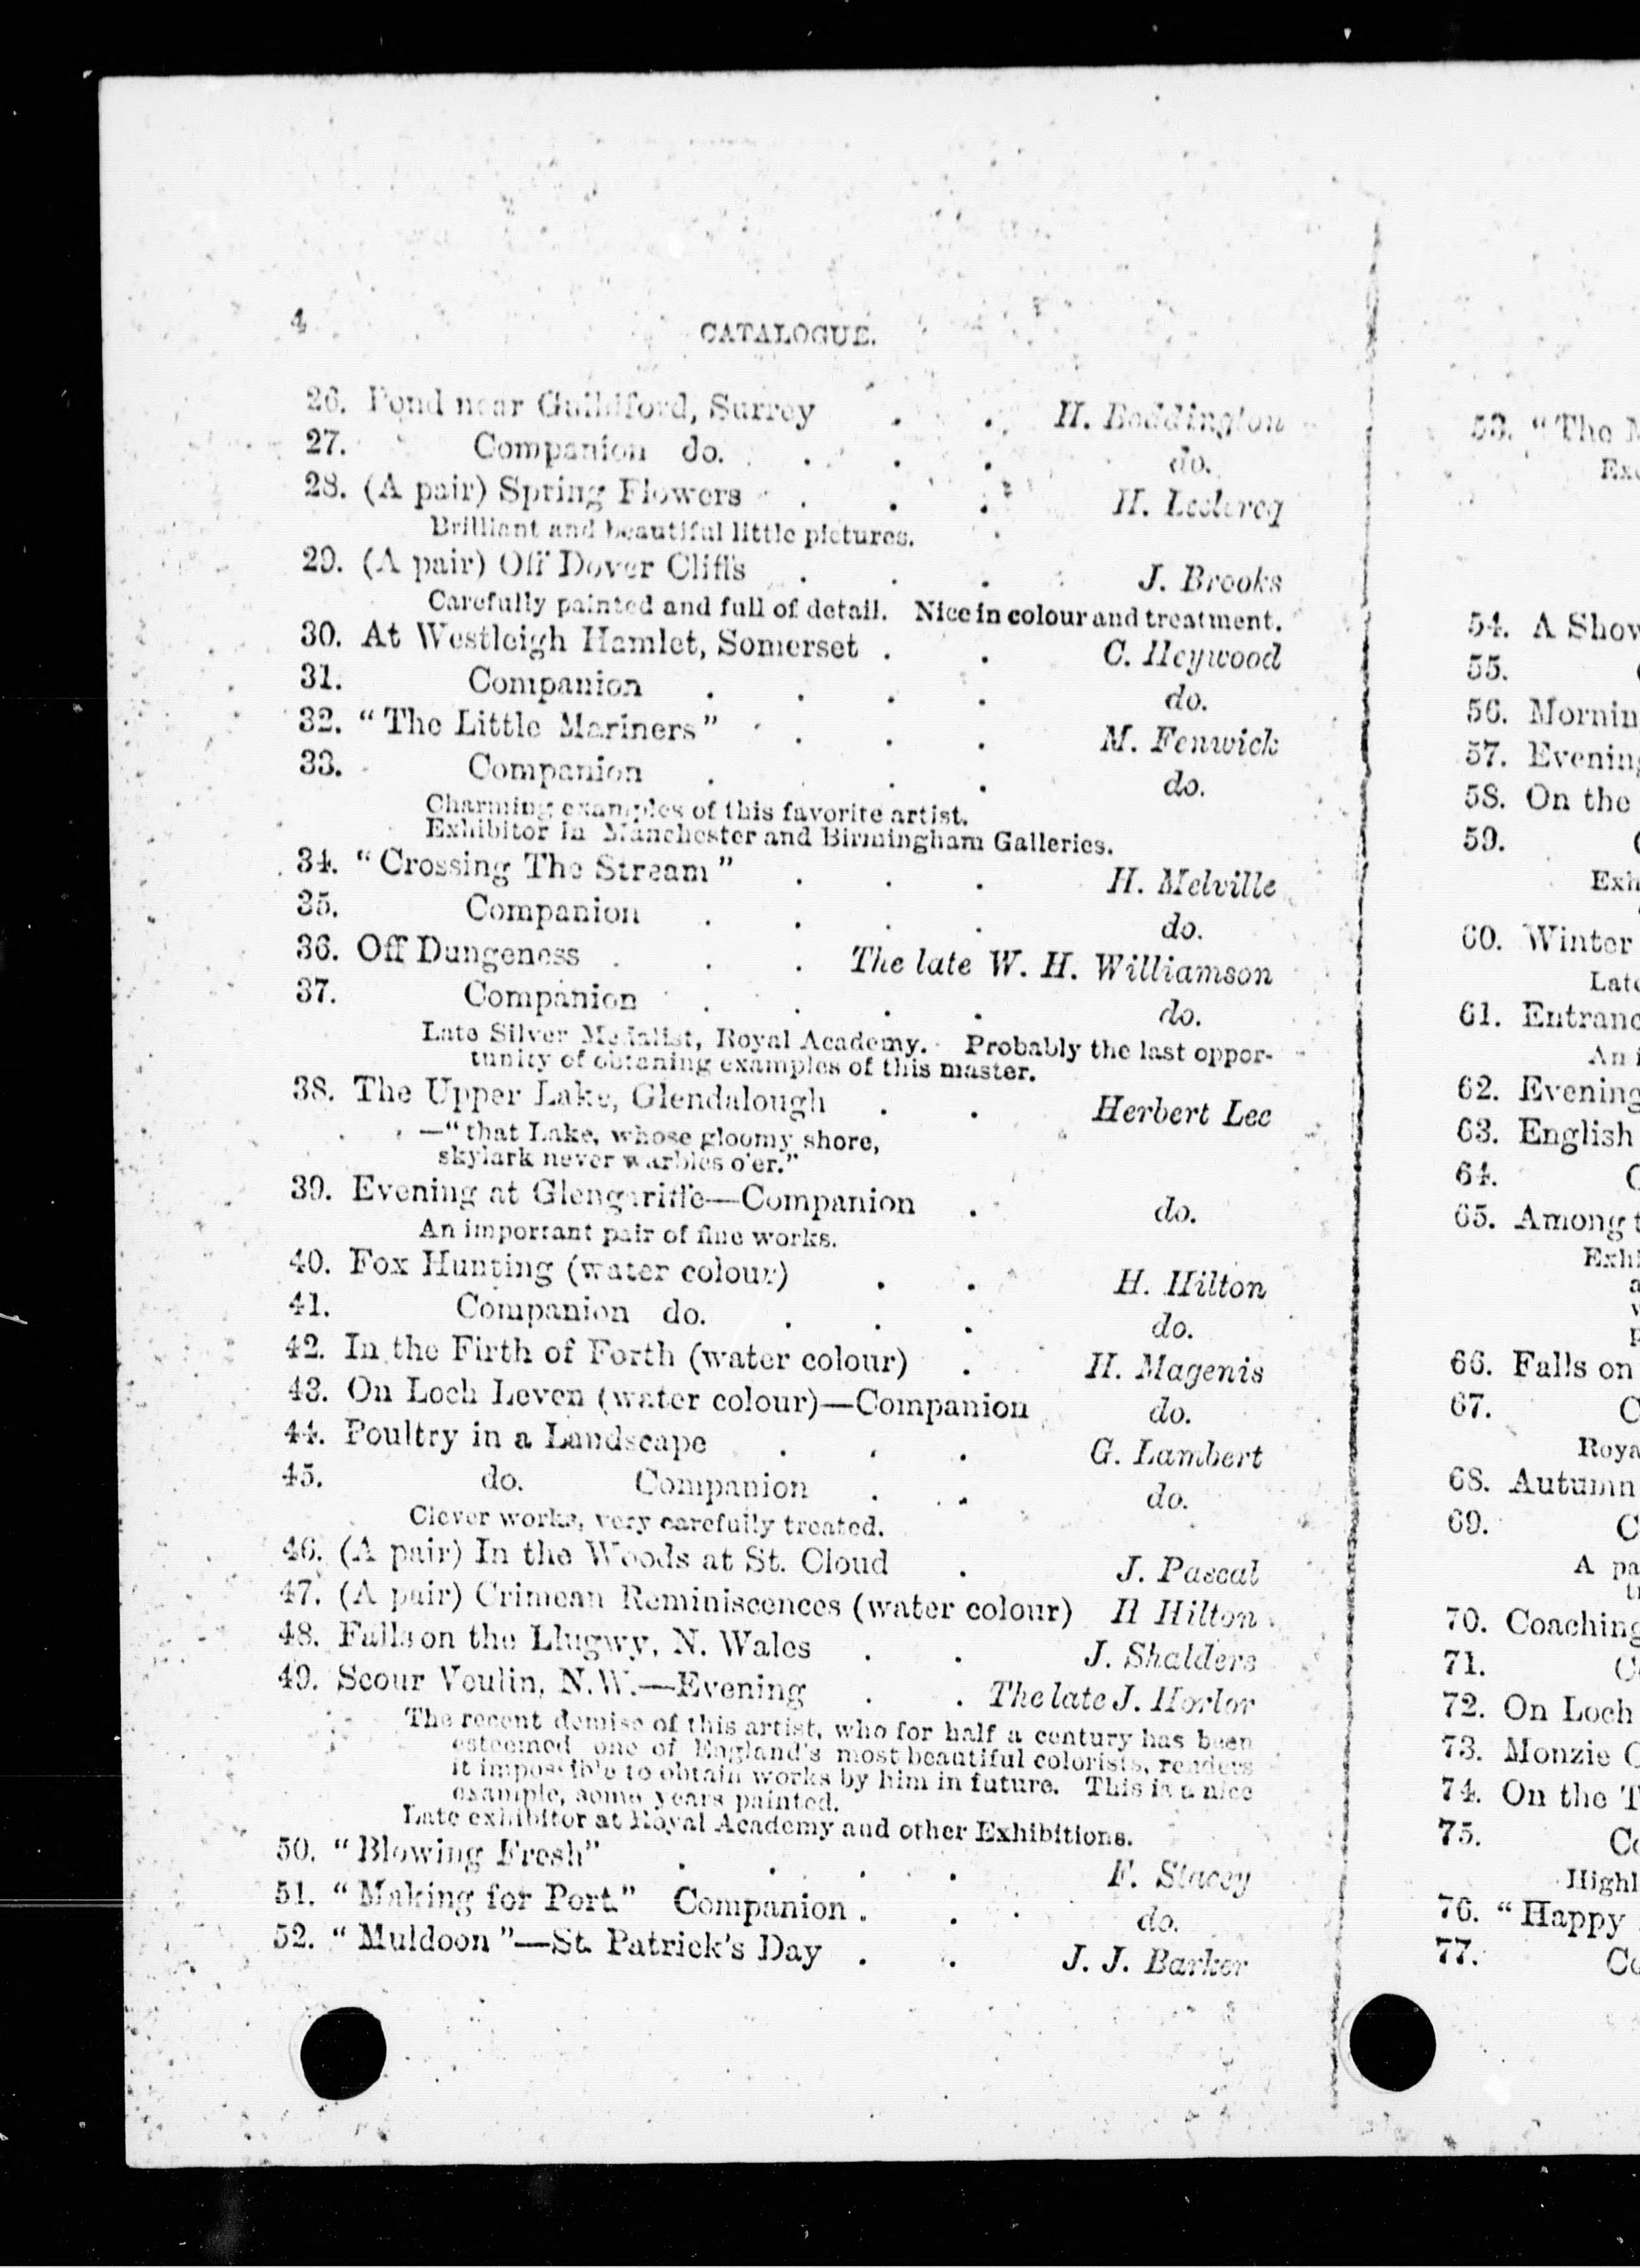 4
CATALOGUE.
26. Pond near Guildford, Surrey . . H. Boddington
27. Companion do. . . . do.
28. (A pair) Spring Flowers . . . H. Leclercq
Brilliant and beautiful little pictures.
29. (A pair) Off Dover Cliffs . . . J. Brooks
Carefully painted and full of detail. Nice in colour and treatment.
30. At Westleigh Hamlet, Somerset . . C. Heywood
31. Companion . . . . do.
32. “The Little Mariners” . . . M. Fenwick
33. Companion . . . do.
Charming examples of this favorite artist.
Exhibitor in Manchester and Birmingham Galleries.
34. “Crossing The Stream” . . . H. Melville
35. Companion . . . . do.
36. Off Dungeness . . . The late W. H. Williamson
37. Companion . . . . do.
Late Silver Medalist, Royal Academy. Probably the last oppor-
tunity of obtaning examples of this master.
38. The Upper Lake, Glendalough . . Herbert Lee
—“that Lake, whose gloomy shore,
skylark never warbles o'er.”
39. Evening at Glengariffe—Companion . do.
An important pair of fine works.
40. Fox Hunting (water colour) . . H. Hilton
41. Companion do. . . . do.
42. In the Firth of Forth (water colour) . H. Magenis
43. On Loch Leven (water colour)—Companion do.
44. Poultry in a Landscape . . . G. Lambert
45. do. Companion . . . do.
Clever works, very carefully treated.
46. (A pair) In the Woods at St. Cloud . J. Pascal
47. (A pair) Crimean Reminiscences (water colour) H Hilton
48. Falls on the Llugwy, N. Wales . . J. Shalders
49. Scour Voulin, N.W.—Evening . . The late J. Horlor
The recent demise of this artist, who for half a century has been
esteemed one of England's most beautiful colorists, renders
it impossible to obtain works by him in future. This is a nice
example, some years painted.
Late exhibitor at Royal Academy and other Exhibitions.
50. “Blowing Fresh” . . . . F. Stacey
51. “Making for Port.” Companion . . do.
52. “Muldoon”—St. Patrick's Day . . J. J. Barker
53. “The
54. A Show
55.
56. Mornin
57. Evening
58. On the
59.
Exh
60. Winter
Late
61. Entranc
An
62. Evening
63. English
64.
65. Among t
Exhi
66. Falls on
67. C
Roya
68. Autumn
69. C
A pa
70. Coaching
71. C
72. On Loch
73. Monzie C
74. On the T
75. Co
Highl
76. “Happy
77. Co